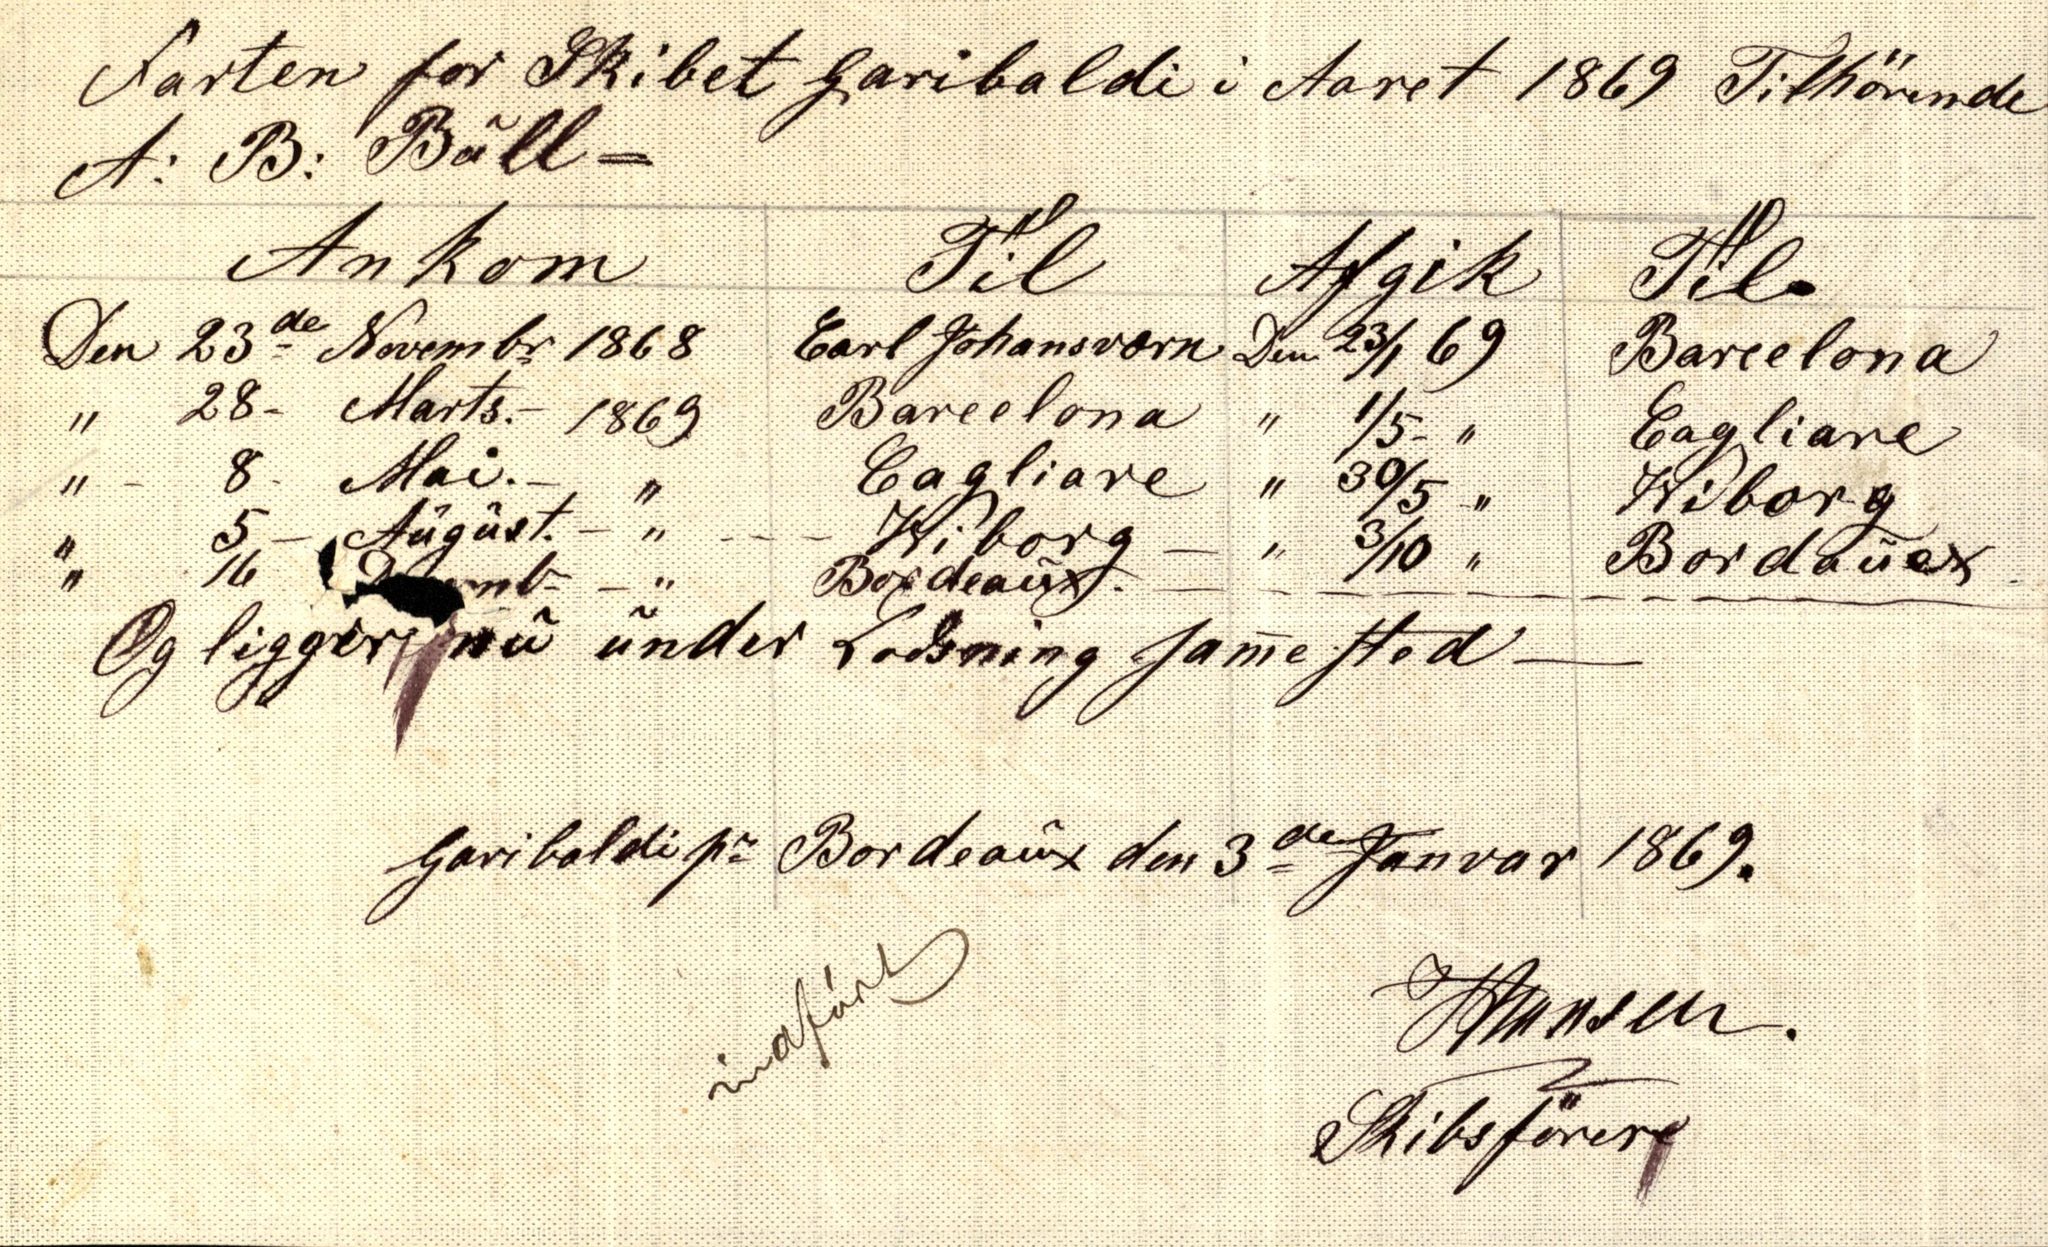 Farten for Skibet Garibaldi i Aaret 1869 Tilhörende
A: B: Bŭll =
Ankom Til Afgik Til
Den 23de Novembr 1868 Carl Johansværn Den 23/1 69 Barcelona
" 28 - Marts. - 1869 Barcelona " 1/5 - " Cagliare
" - 8 - Mai. - " Cagliare " 30/5 " Wiborg
" 5 - Aŭgŭst. - " - - - Wiborg - " 3/10 " Bordaŭex
" 16 - " Bordeaŭx.
Og ligger nŭ ŭnder Losning samme sted —
Garibaldi pr Bordeaŭx den 3de Janvar 1869.
Hansen.
indfört
Skibsförere